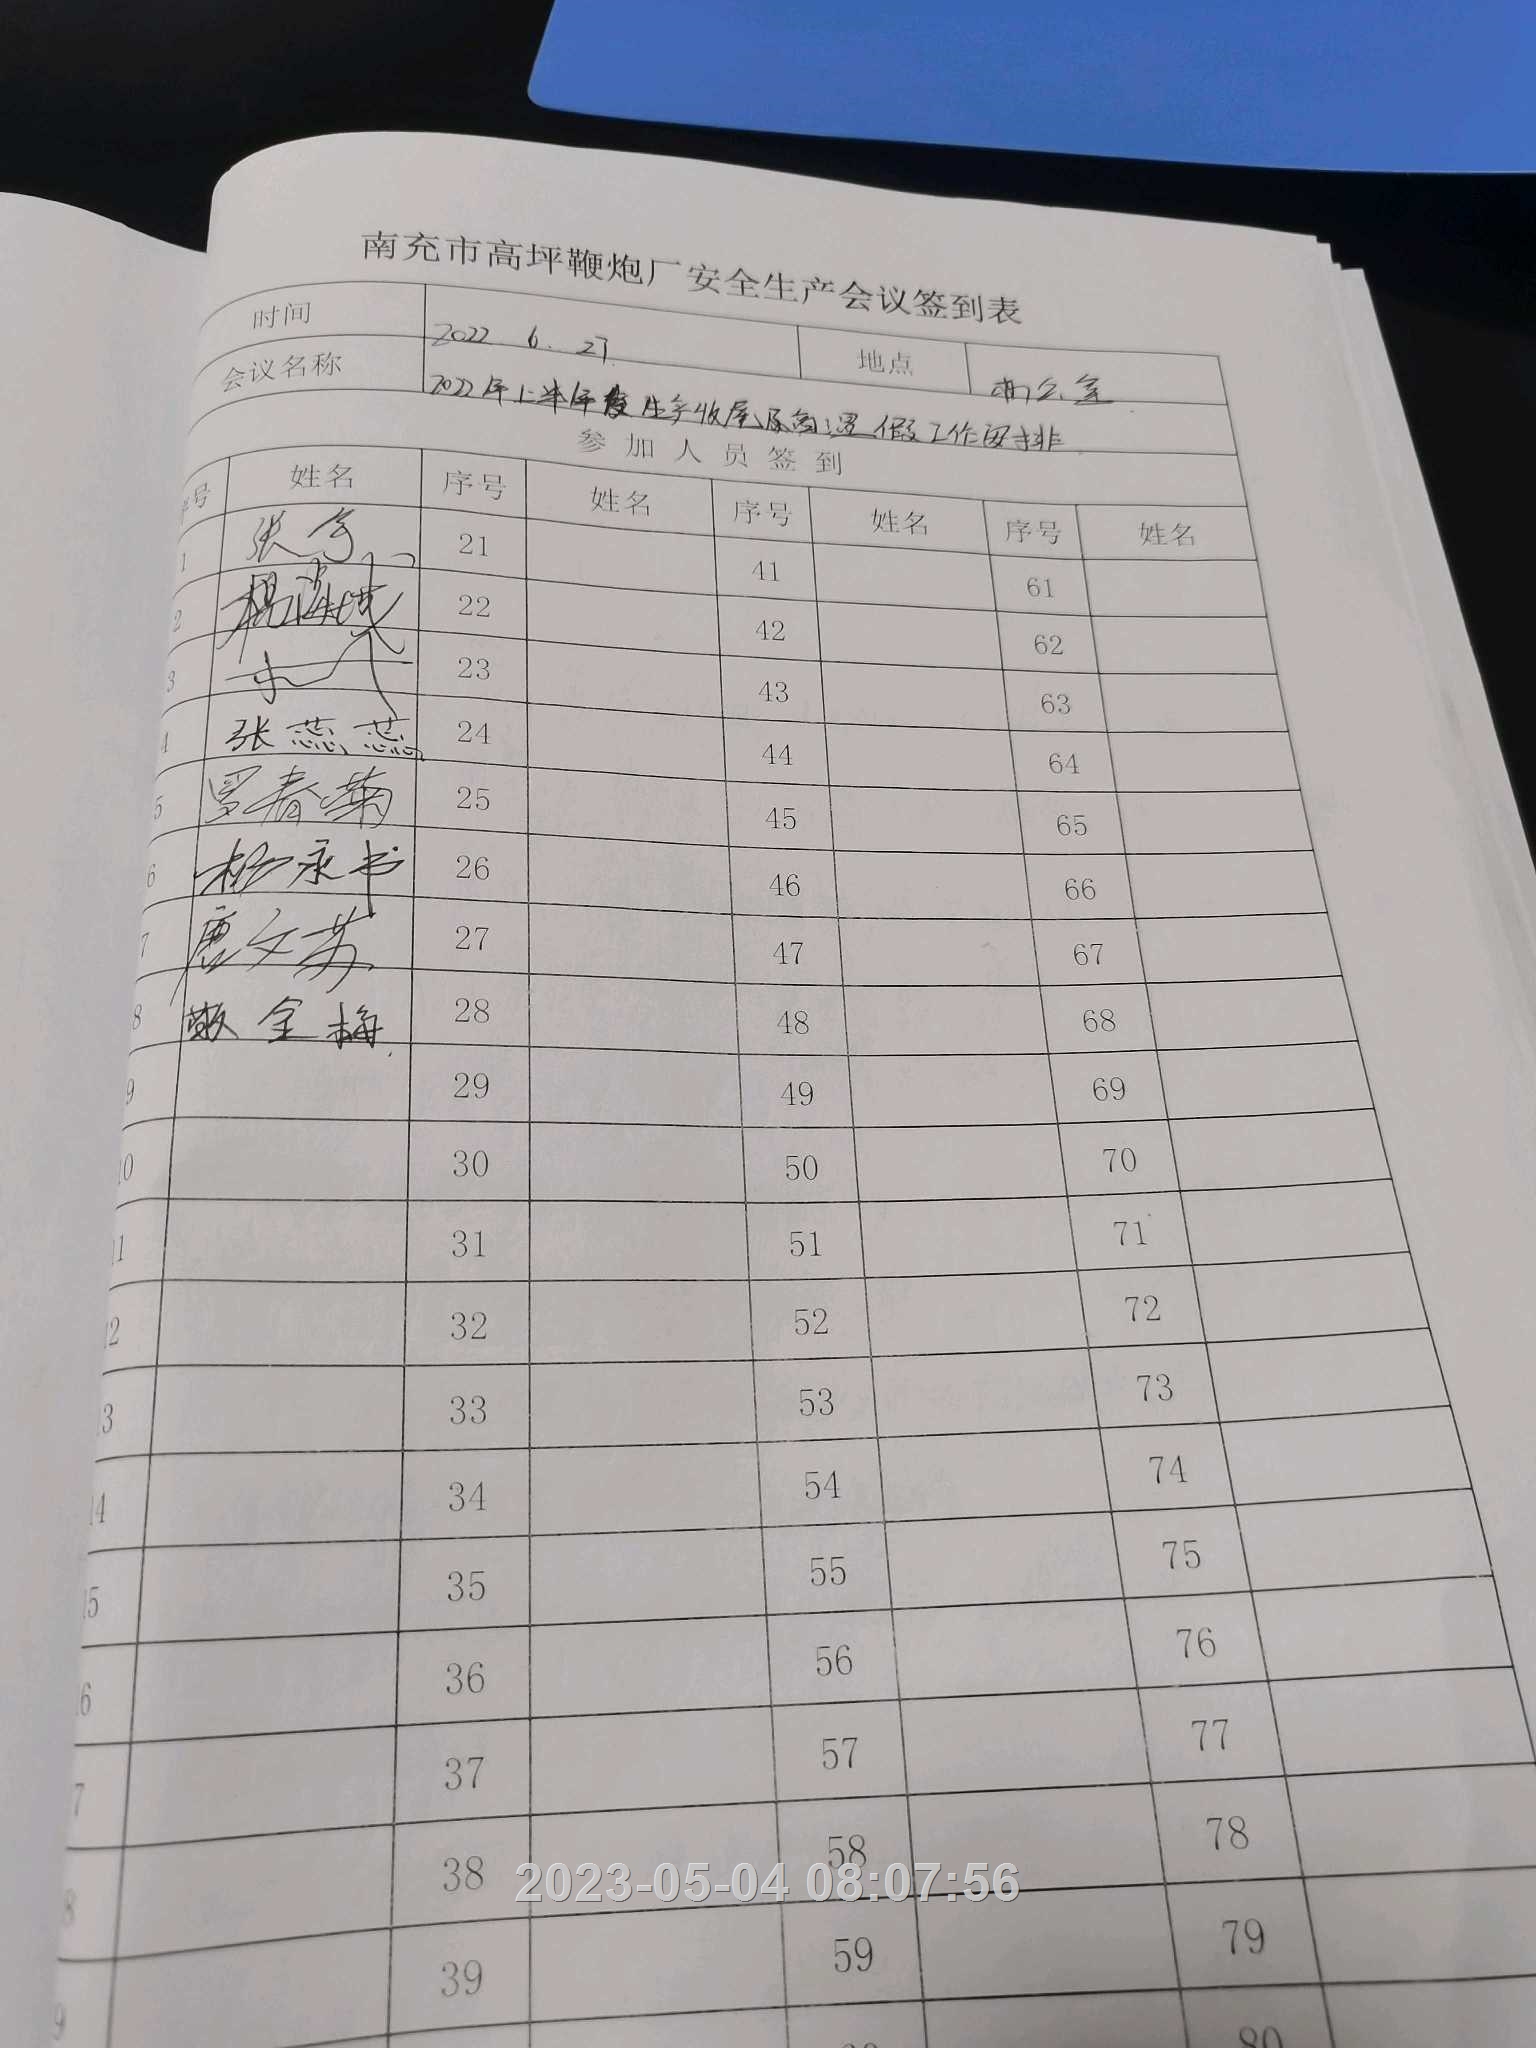 南充市高坪鞭炮厂安全生产会议签到表
时间 2022 6. 27 地点 办公室
会议名称 2022年上半年度生产收尾及高温假工作安排
参加人员签到
序号 姓名 序号 姓名 序号 姓名 序号 姓名
1 张 21 41 61
2 杨 22 42 62
3 23 43 63
4 张蕊蕊 24 44 64
5 罗春菊 25 45 65
6 杨永书 26 46 66
7 唐文 27 47 67
8 金梅 28 48 68
9 29 49 69
10 30 50 70
11 31 51 71
12 32 52 72
13 33 53 73
14 34 54 74
15 35 55 75
16 36 56 76
17 37 57 77
18 38 58 78
19 39 59 79
80
2023-05-04 08:07:56